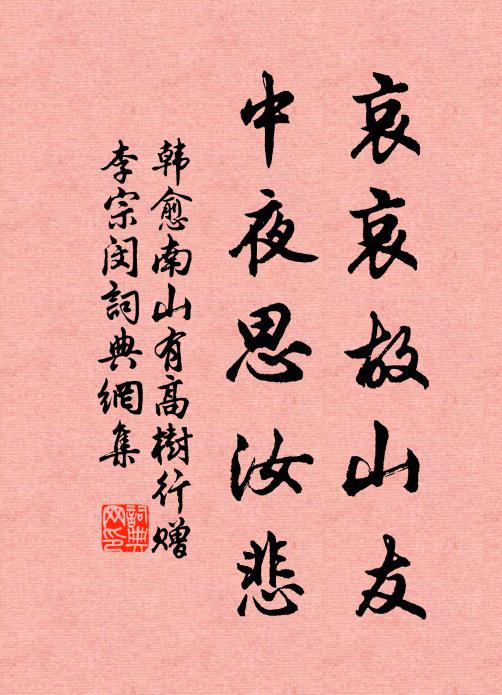 哀哀故山友
中夜思汝悲
韩愈南山有高樹行赠
李宗闵詞典網集
詞典网印